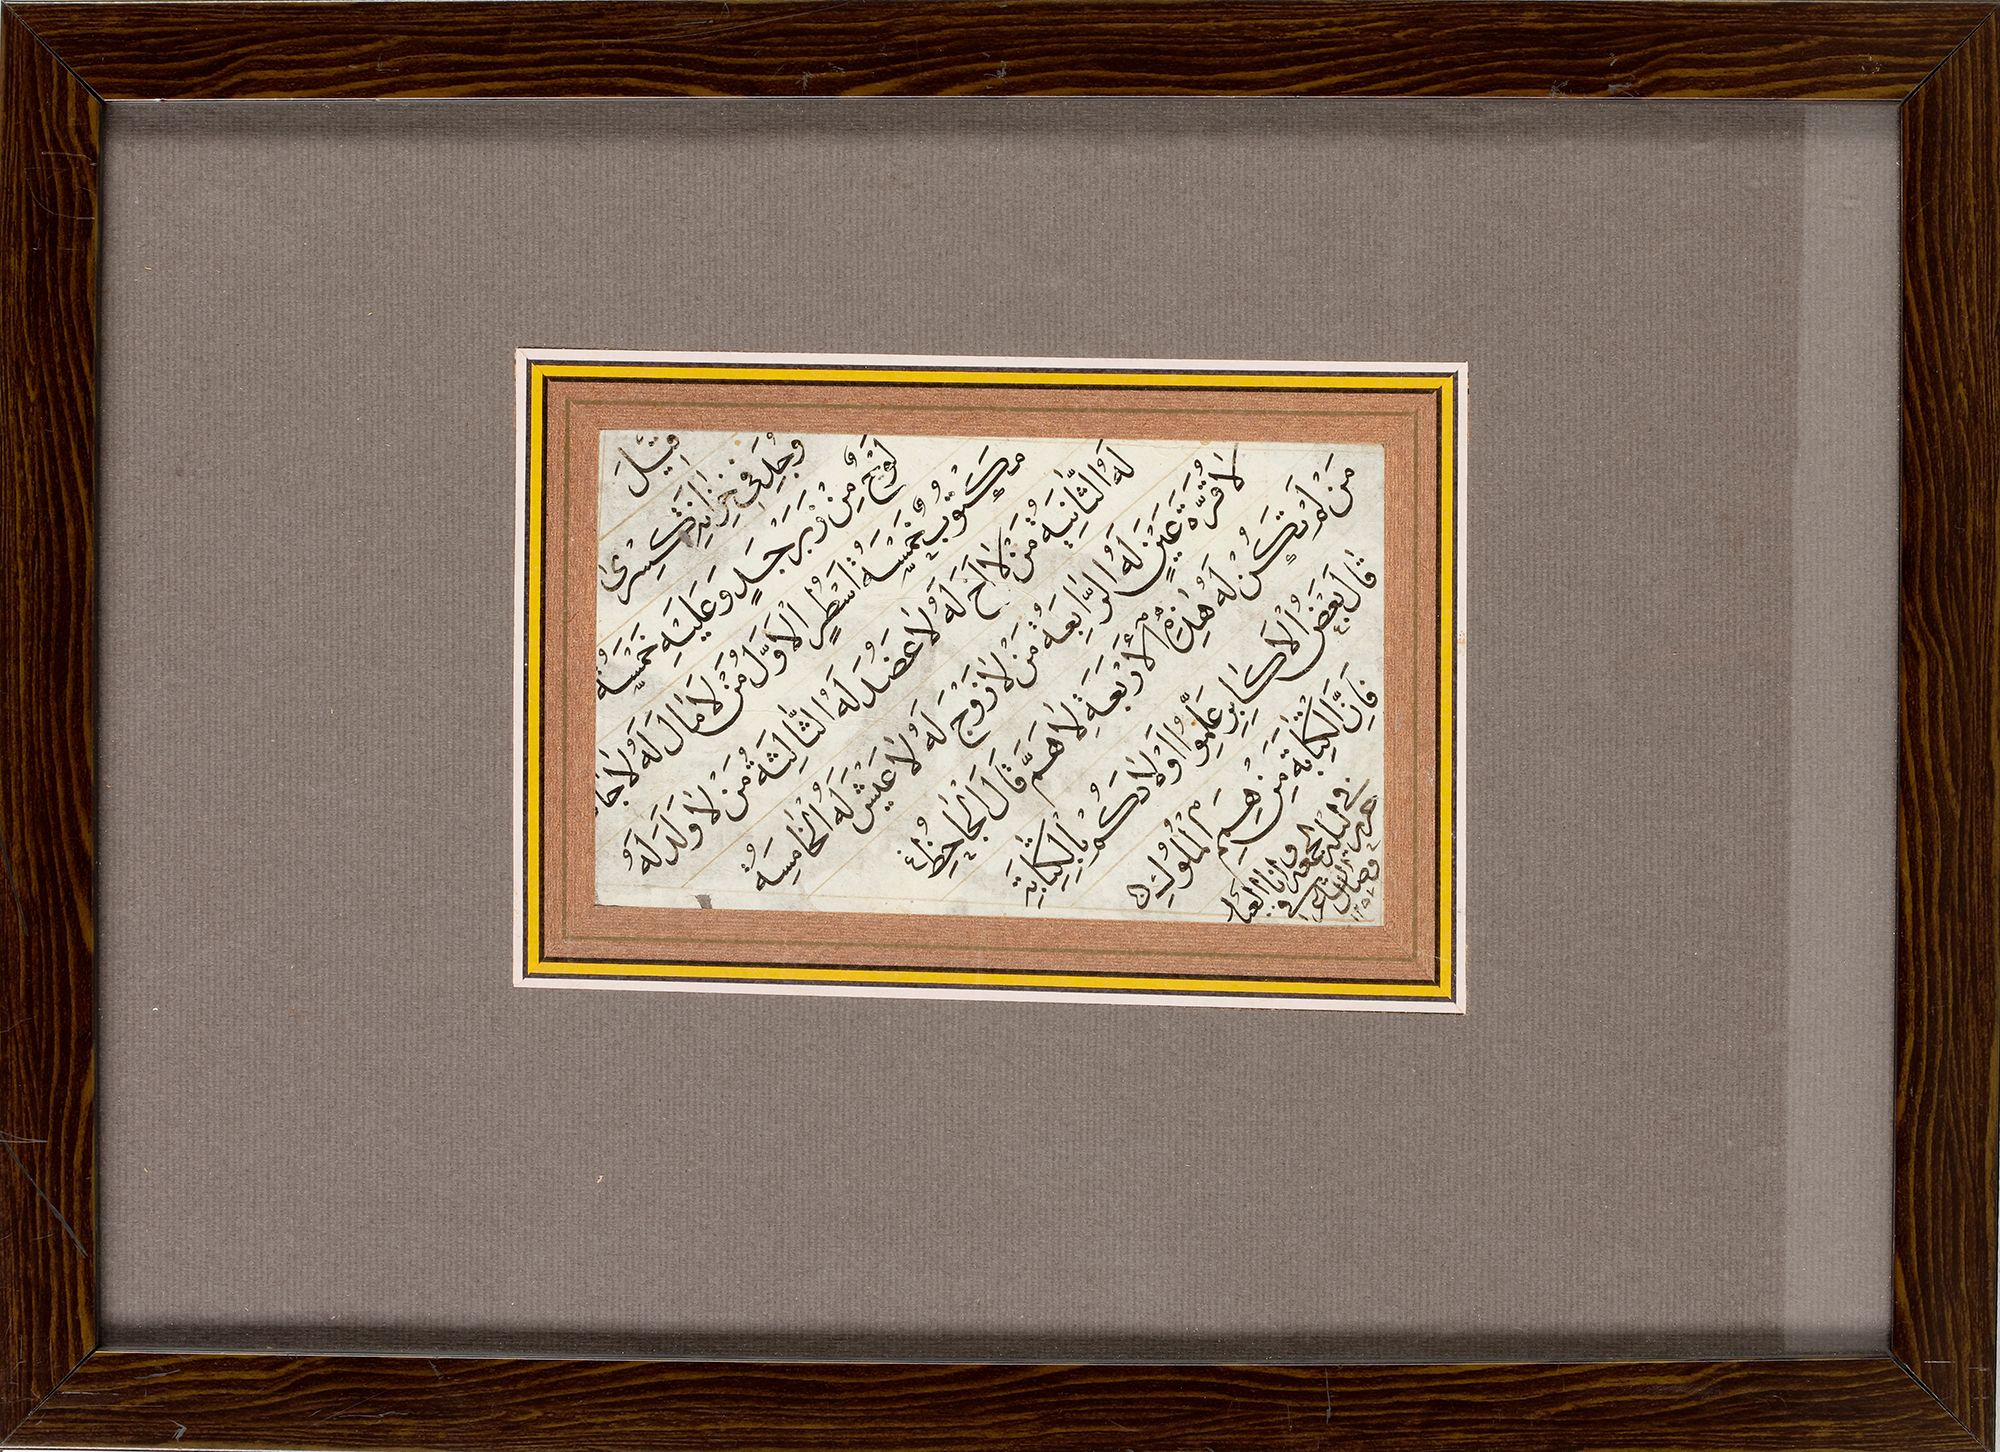 قِيْلَ
وُجِدَ فِى خِزَانَةِ كِسْرىٰ
لَوْحٌ مِنْ زَبَرْجَدٍ وَعَلَيْهِ خَمْسَةُ
مَكْتُوبٌ خَمْسَةُ اَسْطُرٍ الْاَوَّلُ مَنْ لَا مٰالَ لَهُ لَا جٰا
لَهُ الثّٰانِيَةُ مَنْ لٰا اَخَ لَهُ لٰا عَضُدَ لَهُ الثّٰالِثَةُ مَنْ لٰا وَلَدَ لَهُ
لٰا قُرَّةَ عَيْنٍ لَهُ الرّٰابِعَةُ مَنْ لٰا زَوْجَ لَهُ لٰا عَيْشَ لَهُ الْخٰامِسَةُ
مَنْ لَمْ تَكُنْ لَهُ هٰذِهِ الْاَرْبَعَةِ لٰا هَمَّ قٰالَ الْجٰاحِظُ
قٰالَ بَعْضُ الْاَكٰابِرِ عَلِّمُوا اَوْلٰادَكُمْ بِالْكِتٰابَةِ
فَاِنَّ الْكِتٰابَةَ مِنْ هِمَمِ الْمُلُوكِ
فى ليلة الجمعة
وصال
١٢٥٧